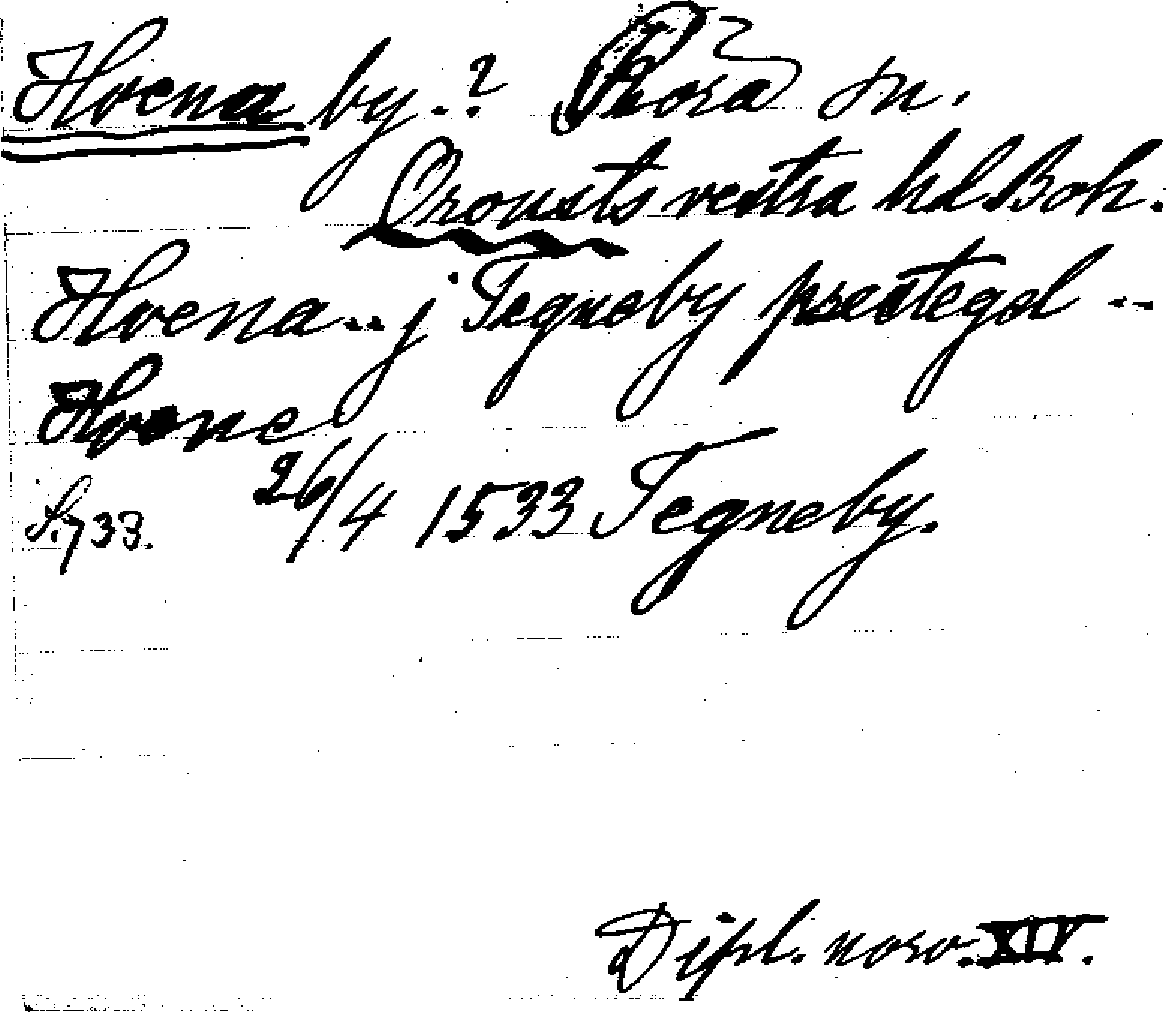 Hvena by.? Röra sn.
Orousts vestra hd. Boh.
Hvena .. j Tegneby prestegel ..
Hvene
S. 733. 26/4 1533 Tegneby.
Dipl. norv. XIV.